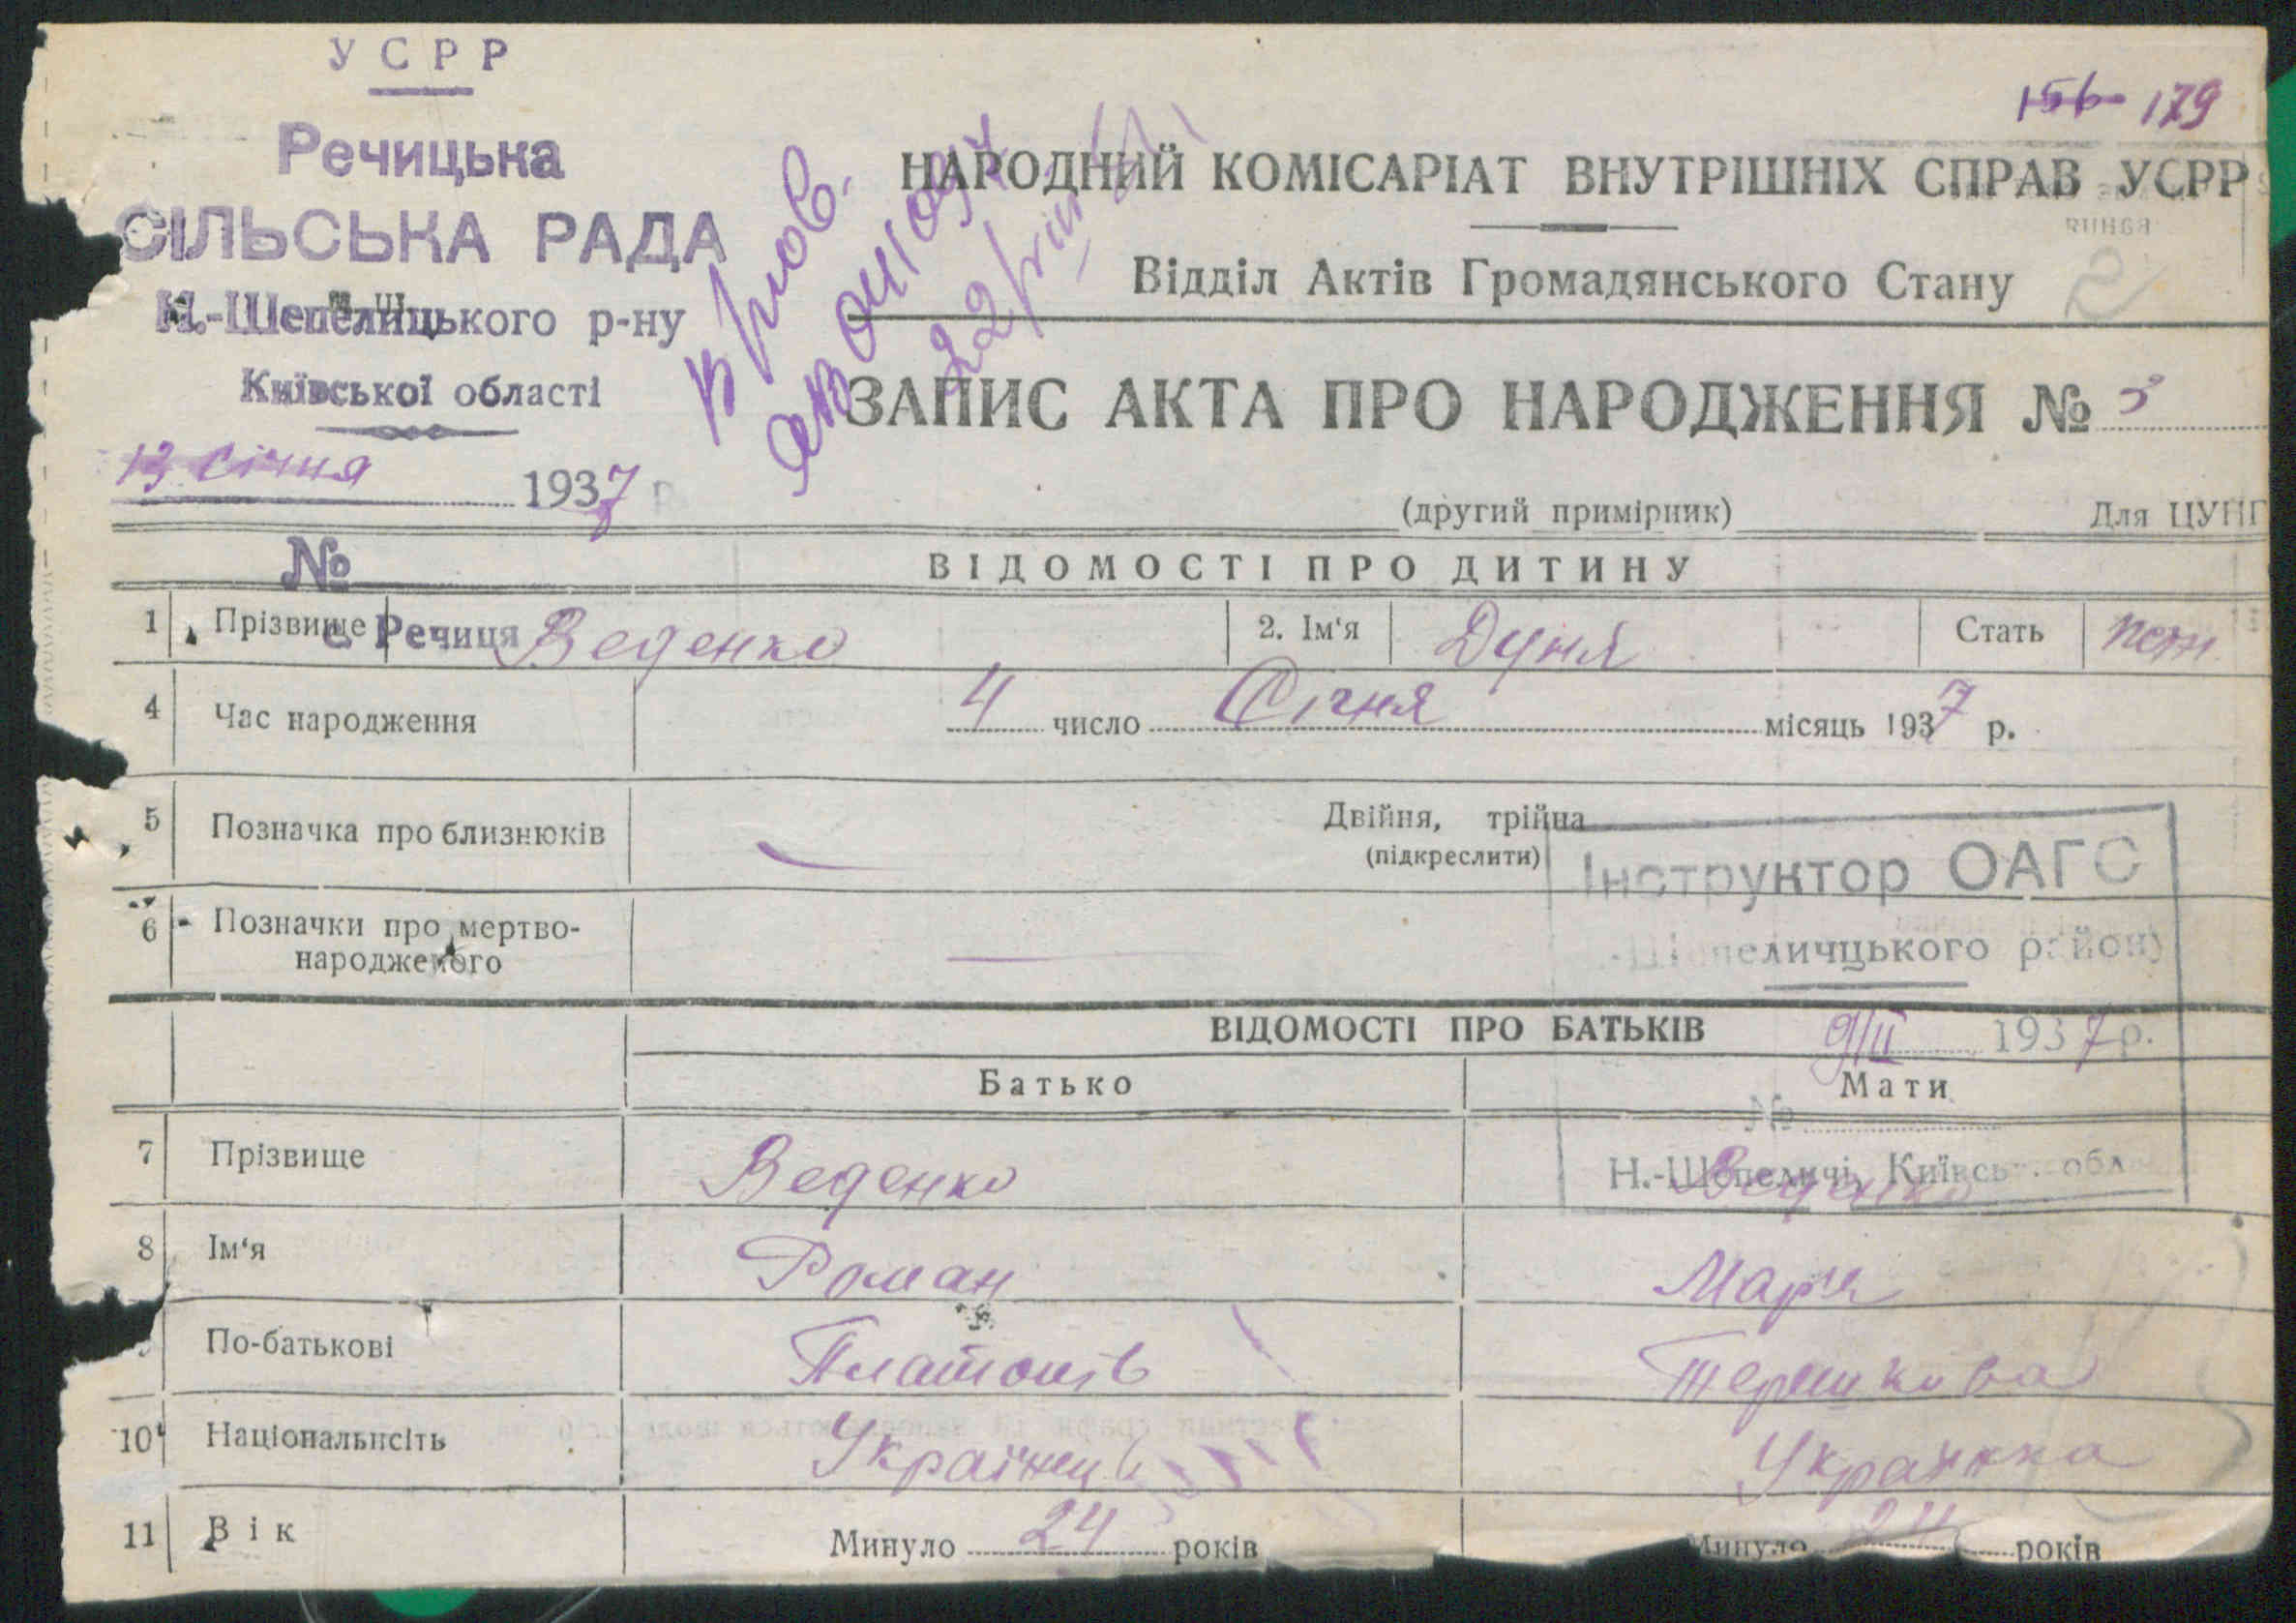 УСРР
Речицька
СІЛЬСЬКА РАДА
Н.-Шепелицького р-ну
Київської області
13 січня 1937 р.
№
с. Речиця
156 179
НАРОДНИЙ КОМІСАРІАТ ВНУТРІШНІХ СПРАВ УСРР
Відділ Актів Громадянського Стану
2
ЗАПИС АКТА ПРО НАРОДЖЕННЯ № 3
(другий примірник) Для ЦУНГ
ВІДОМОСТІ ПРО ДИТИНУ
1 Прізвище Веденко 2. Ім‘я Дуня Стать
4 Час народження 4 число Січня місяць 1937 р.
5 Позначка про близнюків Двійня, трійна
(підкреслити)
6 Позначки про мертво-
народженого
Інструктор ОАГС
Шепеличцького району
9/II 1937 р.
№
Н.-Шепеличі, Київськ. обл
ВІДОМОСТІ ПРО БАТЬКІВ
Батько Мати
7 Прізвище Веденко Веденко
8 Ім‘я Роман Мар'я
По-батькові Платонів Терешкова
10 Національнсіть Українець Українка
11 Вік Минуло 24 років Минуло 24 років